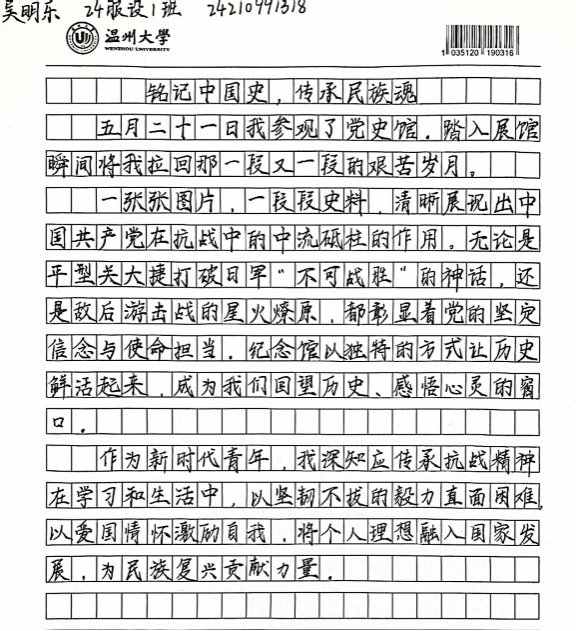 吴明乐 24服设1班 24210991318
温州大学
WENZHOU UNIVERSITY
1 035120 190316
铭记中国史，传承民族魂
五月二十一日我参观了党史馆，踏入展馆
瞬间将我拉回那一段又一段的艰苦岁月。
一张张图片，一段段史料，清晰展现出中
国共产党在抗战中的中流砥柱的作用。无论是
平型关大捷打破日军“不可战胜”的神话，还
是敌后游击战的星火燎原，都彰显着党的坚定
信念与使命担当。纪念馆以独特的方式让历史
鲜活起来，成为我们回望历史、感悟心灵的窗
口。
作为新时代青年，我深知应传承抗战精神
在学习和生活中，以坚韧不拔的毅力直面困难，
以爱国情怀激励自我，将个人理想融入国家发
展，为民族复兴贡献力量。